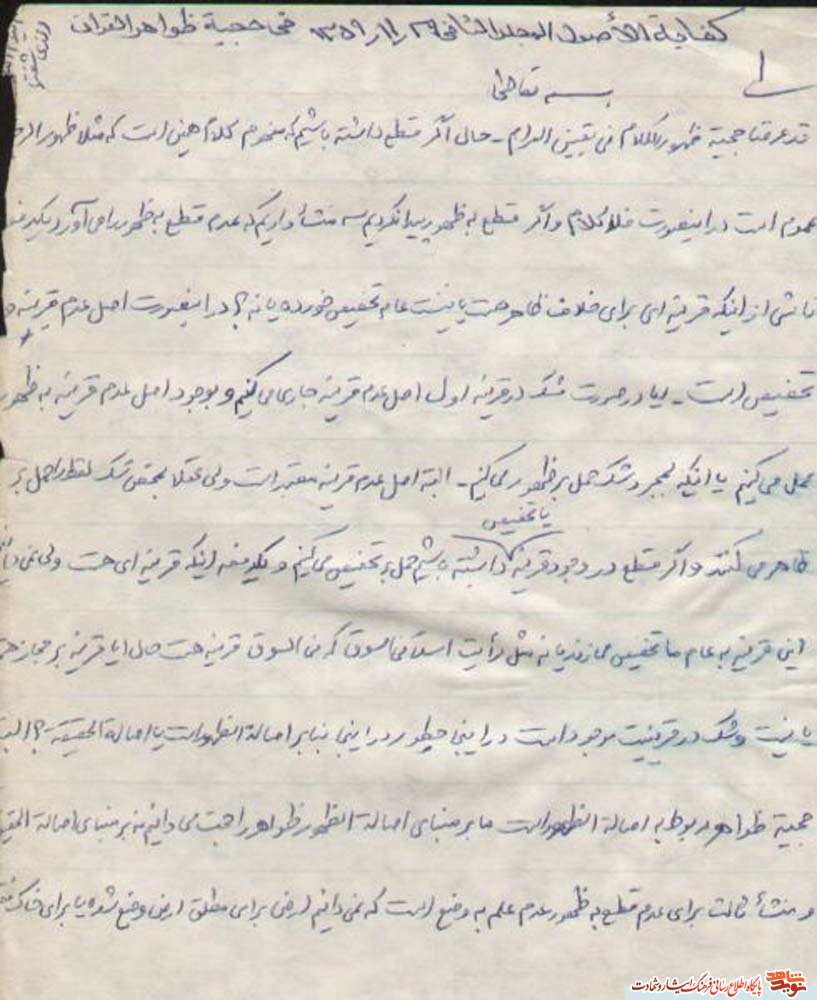 كفاية الأصول المجلد الثانی ۲۹/۱۱/۱۳۵۹ فی حجیة ظواهر القرآن
بسمه تعالی
قد عرفنا حجیة ظهور الکلام فی تعیین المرام - حالی اگر قطع داشته باشیم که مفهوم کلام همین است که مثلا ظهور
عموم است در اینصورت فلا کلام و اگر قطع به ظهور پیدا نکردیم سه منشأ داریم که عدم قطع به ظهور را می آورد یکدفعه
ناشی از اینکه قرینه ای برای خلاف ظاهر هست یا نیست عام تخصیص خورده یا نه؟ در اینصورت اصل عدم قرینه و
تخصیص است - ایا در صورت شک در قرینه اول اصل عدم قرینه جاری می کنیم و بوجود اصل عدم قرینه به ظهور
عمل می کنیم یا اینکه بمجرد شک حمل بر ظهور می کنیم - البته اصل عدم قرینه معتبر است ولی عقلا بمحض شک لفظ را حمل بر
یا تخصیص
ظاهر می کنند و اگر قطع در وجود قرینه داشته باشیم حمل بر تخصیص می کنیم و یکدفعه اینکه قرینه ای هست ولی نمی دانیم
این قرینه به عام ما تخصیص می زند یا نه مثل رأیت اسداً فی السوق که فی السوق قرینه هست حال ایا قرینه بر مجاز هست
یا نیست و شک در قرینیت موجود است در اینجا چطور در اینجا بنا بر اصالة الظهور است یا اصالة الحقیقة؟ البته
حجیة ظواهر مربوط به اصالة الظهور است ما بر مبنای اصالة الظهور ظواهر را حجت می دانیم نه بر مبنای اصالة الحقیقة
و منشأ ثالث برای عدم قطع به ظهور عدم علم به وضع است که نمی دانیم ارض برای مطلق ارض وضع شده یا برای خاک
نوید شاهد پایگاه اطلاع رسانی فرهنگ ایثار و شهادت